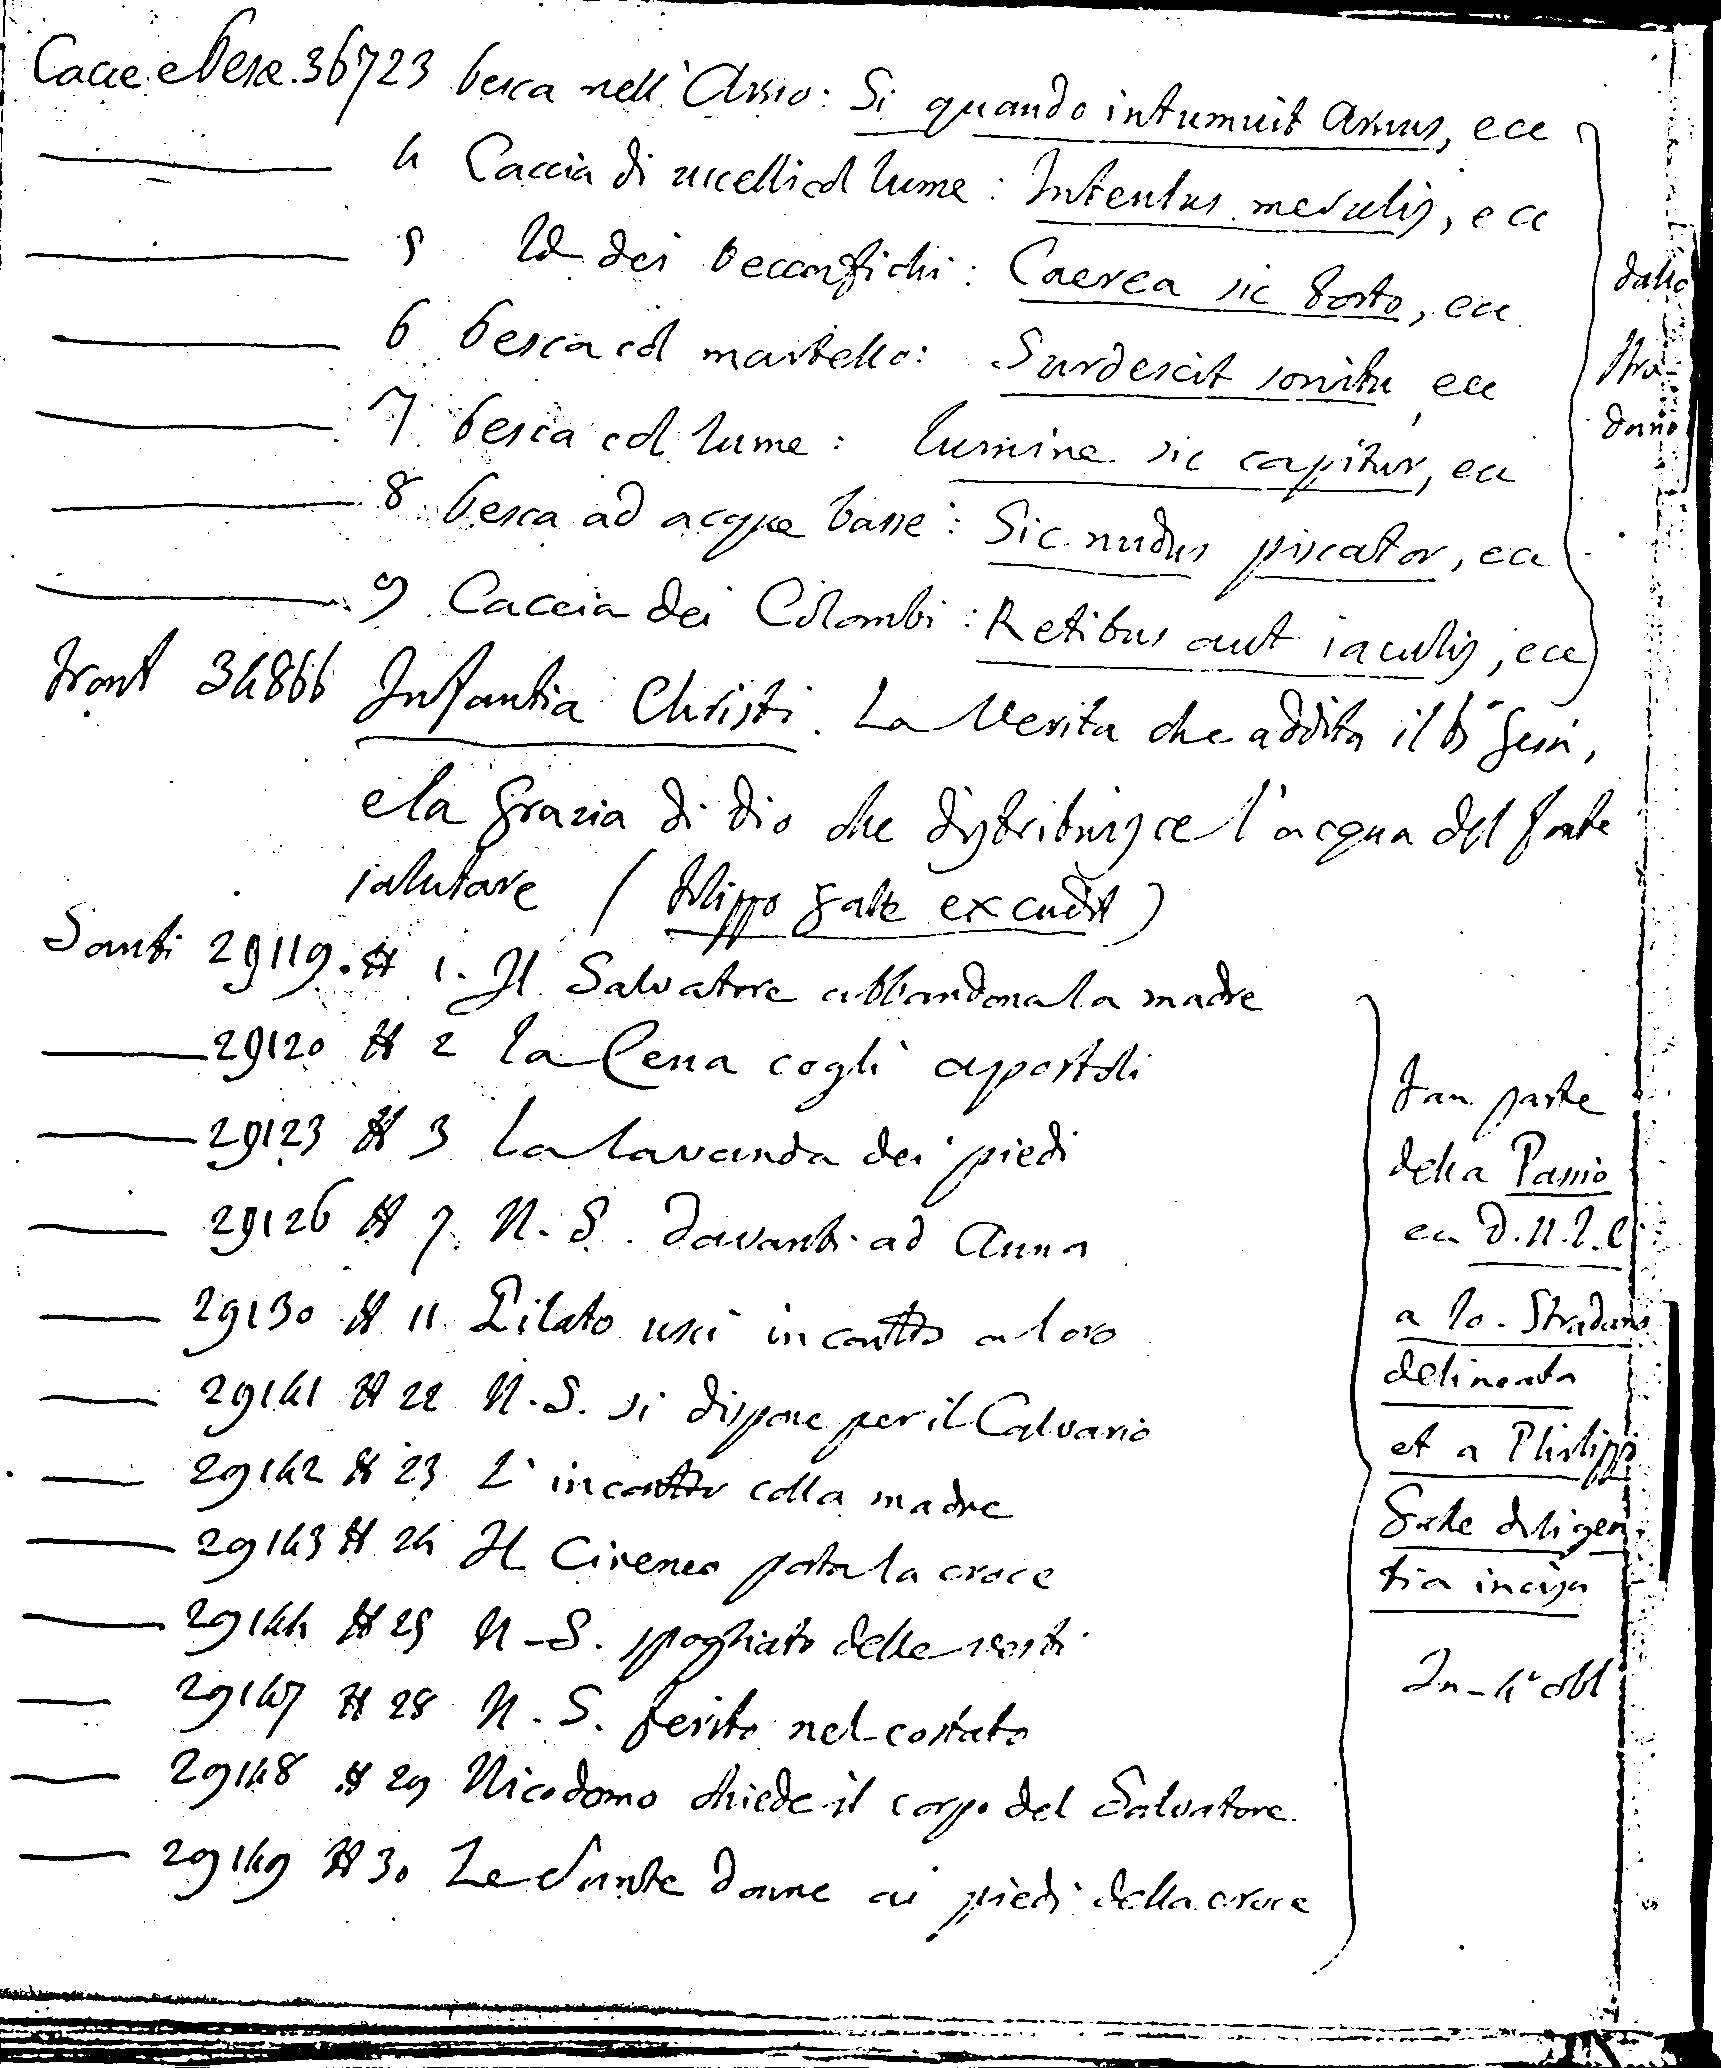 Cacce e Pesce. 36723 Pesca nell' Arno: Si quando intumuit Arnus, ecc
4 Caccia di uccelli col lume: Intentus merulis, ecc
5 Id dei beccafichi: Caerea sic porto, ecc
6 Pesca col martello: Surdescit sonitu ecc
7 Pesca col lume: Lumine sic capitur, ecc
8 Pesca ad acque basse: Sic nudus piscator, ecc
9 Caccia dei Colombi: Retibus aut iaculis, ecc
dallo
Stra-
dano
Front 34866 Infantia Christi. La Verita che addita il Bº Gesù,
e la Grazia di Dio che distribuisce l'acqua del fonte
salutare (Filippo Galle excudit)
Santi 29119. # 1. Il Salvatore abbandona la madre
29120 # 2 La Cena cogli apostoli
29123 # 3 La lavanda dei piedi
29126 # 7 N. S. davanti ad Anna
29130 # 11 Pilato uscì incontro a loro
29141 # 22 N. S. si dispone per il Calvario
29142 # 23 L'incontro colla madre
29143 # 24 Il Cireneo porta la croce
29144 # 25 N. S. spogliato delle vesti
29147 # 28 N. S. ferito nel costato
29148 # 29 Nicodomo chiede il corpo del Salvatore
29149 # 30 Le Sante donne ai piedi della croce
Fan parte
della Passio
ecc D. N. I. C
a Io. Stradano
delineata
et a Philippo
Galle diligen
tia incisa
In-4º obl